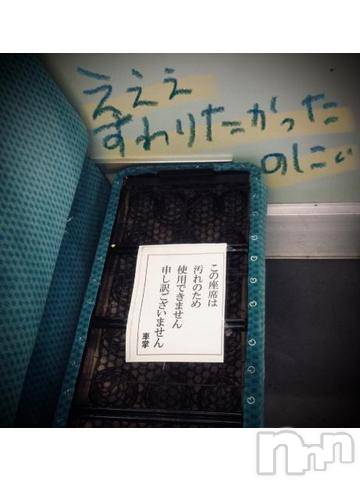 えええ
すわりたかった
のにぃ
この座席は
汚れのため
使用できません
申し訳ございません
車掌
nnn